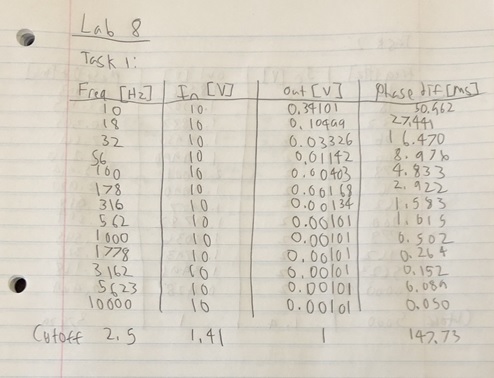 Lab 8
Task 1:
Freq [Hz] In [V] out [V] phase dif [ms]
10 10 0.34101 50.962
18 10 0.10499 27.441
32 10 0.03326 16.470
56 10 0.01142 8.976
100 10 0.00403 4.833
178 10 0.00168 2.922
316 10 0.00134 1.583
562 10 0.00101 1.015
1000 10 0.00101 0.502
1778 10 0.00101 0.264
3162 10 0.00101 0.152
5623 10 0.00101 0.089
10000 10 0.00101 0.050
Cutoff 2.5 1.41 1 147.73